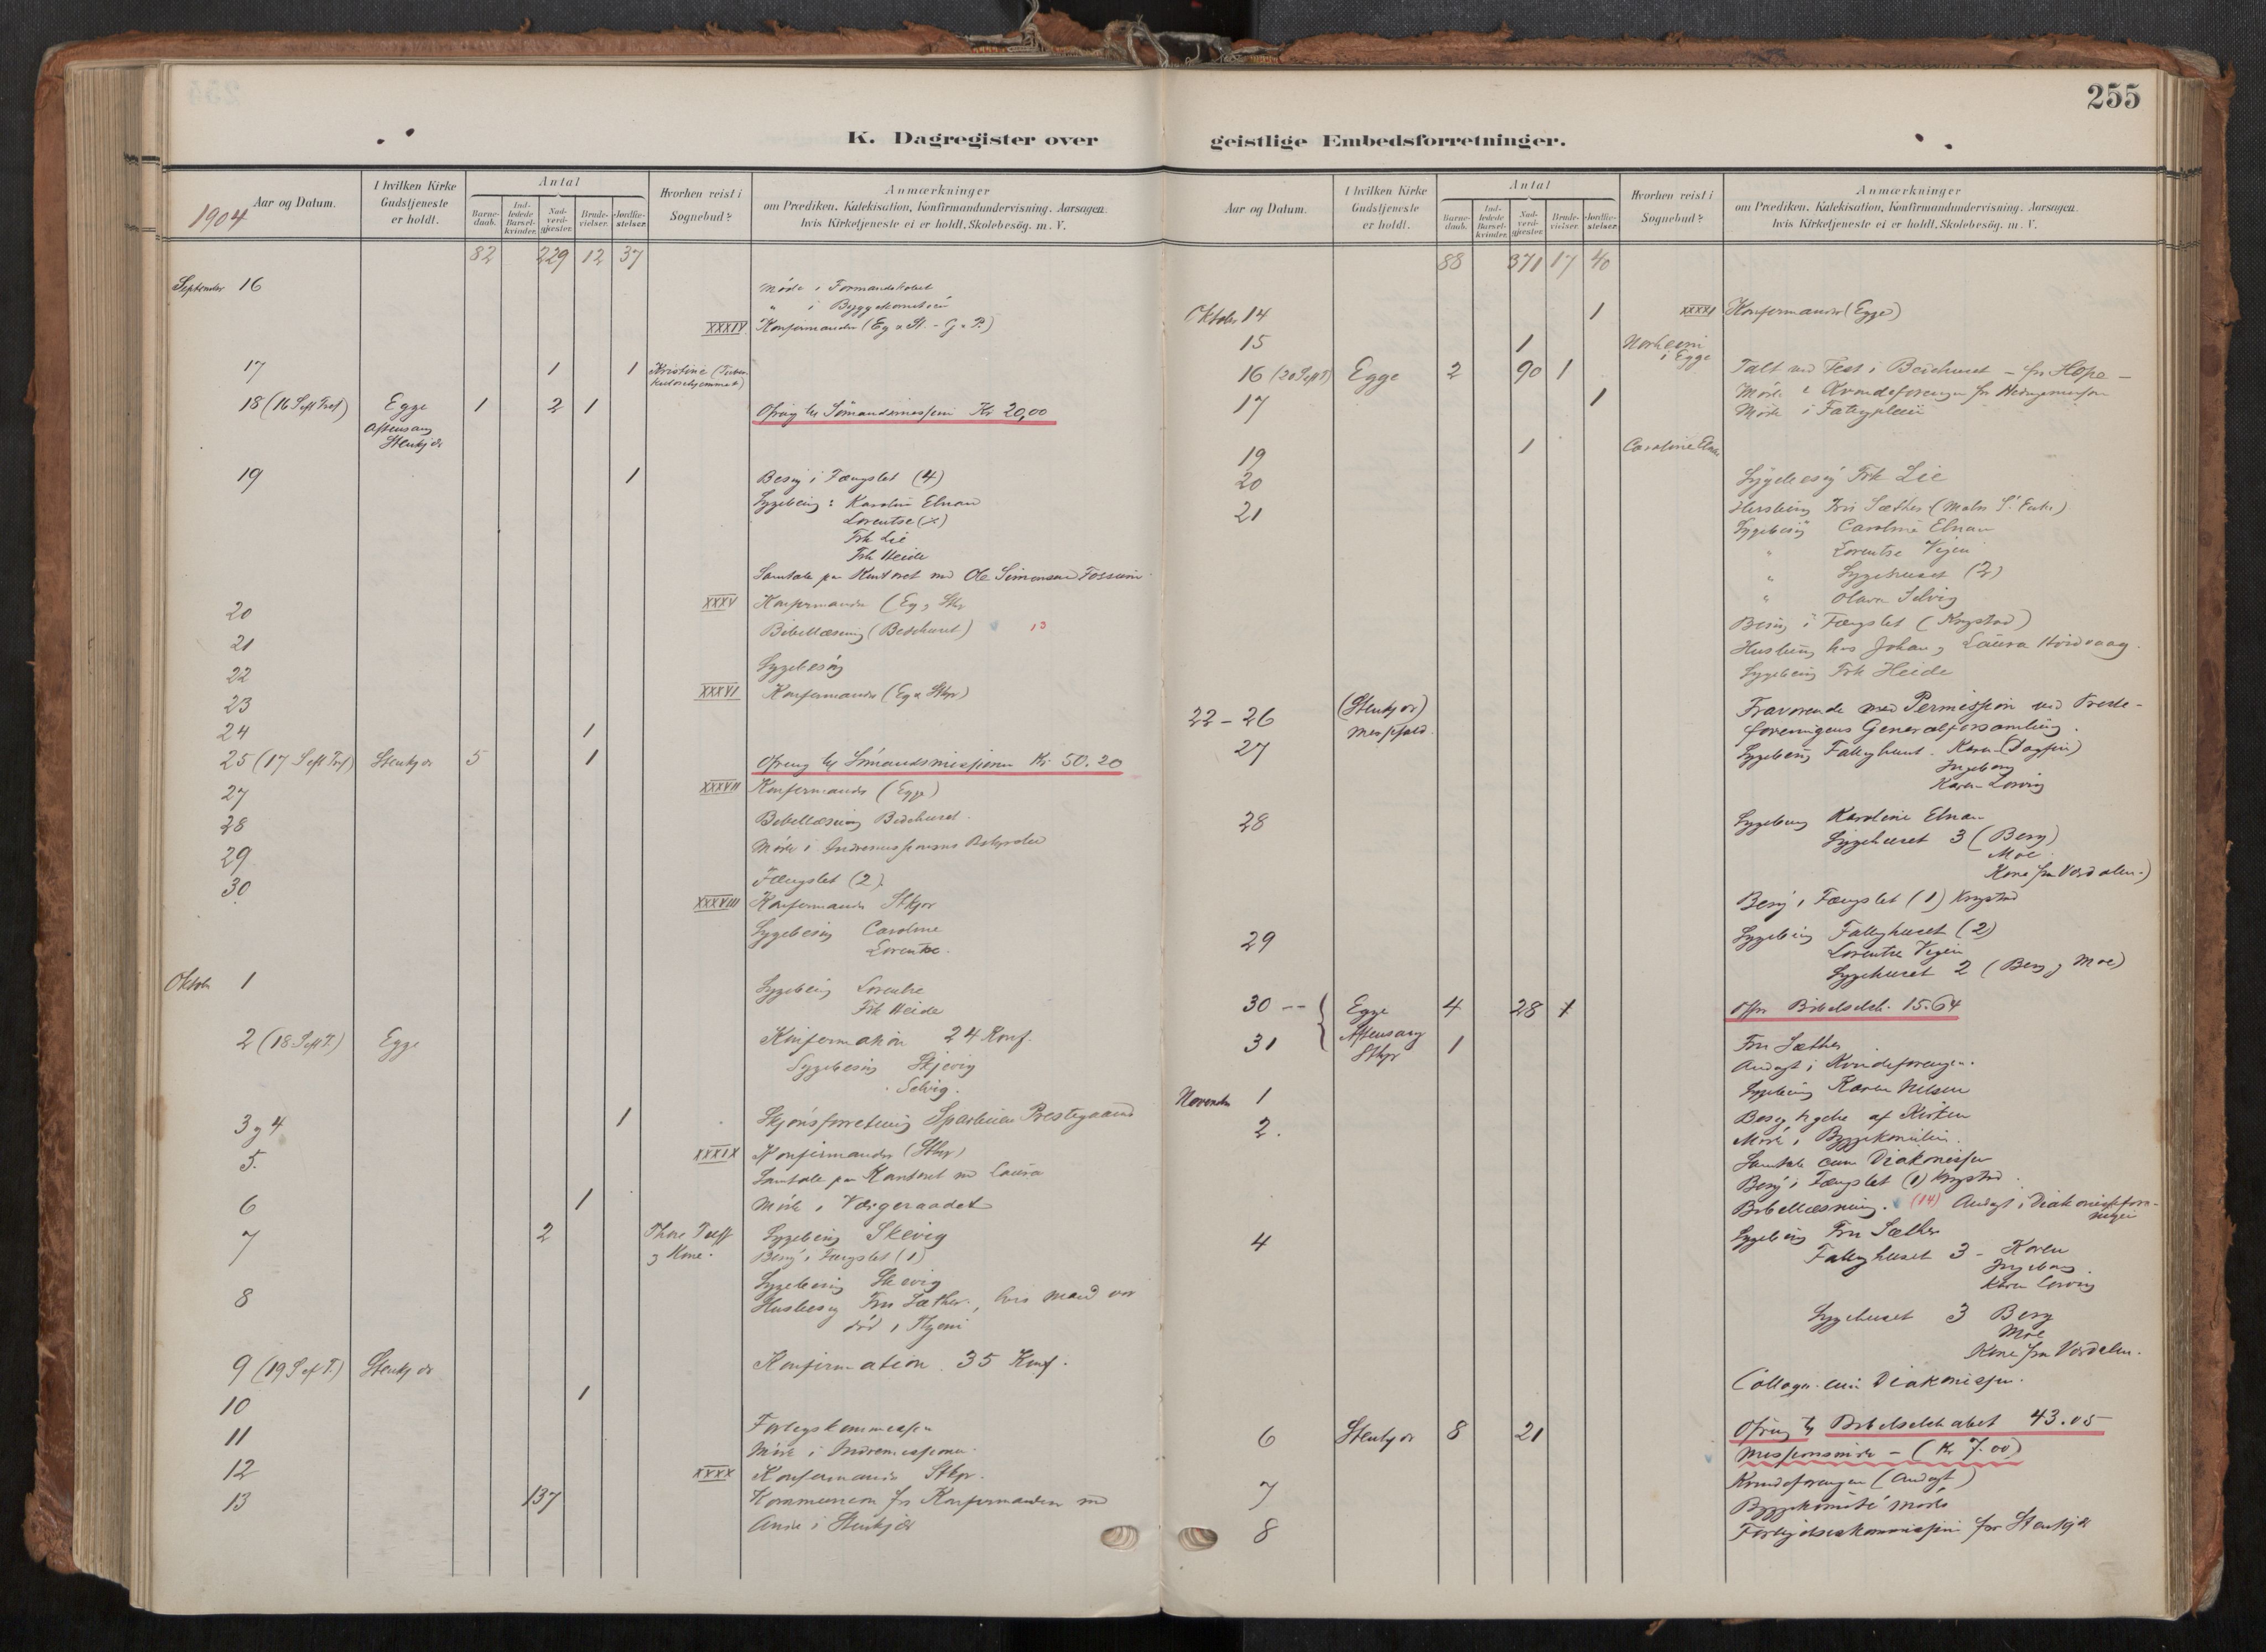 255
K. Dagregister over geistlige Embedsforretninger.
Aar og Datum.
1904
I hvilken Kirke Gudstjeneste er holdt.
Antal
Barnedaab.
Indledede Barselkvinder.
Nadverdgjester.
Brudevielser.
Jordfæstelser.
Hvorhen reist i Sognebud?
Anmærkninger
om Prædiken, Katekisation, Konfirmandundervisning. Aarsagen,
hvis Kirketjeneste ei er holdt. Skolebesøg. m. V.
82 229 12 37
September 16 Møde i Formandskabet
" i Byggekomiteen
XXXIV Konfirmander (Eg & St. - G & P.)
17 1 1 Kristine (Tuberkulosehjemmet)
18 (16 S eft Tref) Egge 1 2 1 Ofring til Sömandsmissjonen Kr 20,00
Aftensang
Stenkjær
19 1 Besøg i Fængslet (4)
Sygebesøg: Karoline Elnan
Lorentse (x)
Frk Lie
Frk Heide
Samtale paa Kontoret med Ole Simonsen Fossum
20 XXXV Konfirmander (Eg og Stkr
21 Bibellæsning (Bedehuset) 13
22 Sygebesøg
23 XXXVI Konfirmander (Eg & Stkjr)
24 1
25 (17 S eft Tref) Stenkjær 5 1 Ofring til Sömandsmissjonen Kr 50.20
27 XXXVII Konfirmander (Egge)
28 Bibellæsning Bedehuset.
29 Møde i Indremissjonens Bestyrelse
30 Fængslet (2)
XXXVIII Konfirmander Stkjær
Sygebesøg Caroline
Lorentse.
Oktober 1 Sygebesøg Lorentse
Frk Heide
2 (18 S eft T.) Egge Konfirmation 24 Konf.
Sygebesøg Skjevig
Selvig.
3 og 4 1 Skjönsforretning Sparbuen Prestegaard
5. XXXIX Konfirmander (Stkjr)
Samtale paa Kontoret med Laura
6 1 Møde i Værgeraadet
7 2 Thore
og Kone. Sygebesøg Skevig
Besøg i Fængslet (1)
8 Sygebesøg Skevig
Husbesøg Fru Sæther, hvis Mand var
död i
9 (19 S ef T.) Stenkjær Konfirmation. 35 Konf.
10 1
11 Forligskommission
12 Møde i Indremissjonen.
XXXX Konfirmander Stkjr.
13 137 Kommunion for Konfirmander med
Andre i Stenkjær
Aar og Datum.
I hvilken Kirke Gudstjeneste er holdt.
Antal
Barnedaab.
Indledede Barselkvinder.
Nadverdgjester.
Brudevielser.
Jordfæstelser.
Hvorhen reist i Sognebud?
Anmærkninger
om Prædiken, Katekisation, Konfirmandundervisning. Aarsagen,
hvis Kirketjeneste ei er holdt. Skolebesøg. m. V.
88 371 17 40
Oktober 14 1 XXXXI Konfirmander (Egge)
15 1 Norheim
i Egge
16 (20 S eft T) Egge 2 90 1 Talt ved Fest i Bedehuset - for Hope -
17 1 Møde i Kvindeforeningen for Hedningemissjon
Møde i Fattigpleien
19 1 Caroline Elnan
20 Sygebesøg Frk Lie
21 Husbesøg Fru Sæther
Sygebesøg Caroline Elnan
" Lorentse Vigen
" Sygehuset (2)
" Olava Selvig
Besøg i Fængslet (Krogstad)
Husbesøg hos Johan og Laura Hordvaag.
Sygebesøg Frk Heide
22-26 (Stenkjær) Messfald. Fraværende med Permission ved Presteforeningens Generalforsamling.
27 Sygebesøg Fattighuset. Karen (Dagfin)
Ingeborg
Karen Loving
28 Sygebesøg Karoline Elnan
Sygehuset 3 (Berg)
Moe
Kone fra Værdalen.)
Besøg i Fængslet (1) Krogstad
29 Sygebesøg Fattighuset (2)
Lorentse Vigen
Sygehuset 2 (Berg og Moe)
30 -- Egge 4 28 1 Offer Bibelselsk. 15.64
31 Aftensang
Stkjr 1 Fru Sæther.
Andagt i Kvindeforeningen.
November 1 Sygebesøg Karen Nilsen
2. Besigtigelse af Kirken
Møde i Byggekomiteen.
Samtale cum Diakonisse
Besøg i Fængslet (1) Krogstad.
Bibellæsning. (14) Andagt i Diakonisseforeningen
4 Sygebesøg Fru Sæther
Fattighuset 3 - Karen
Ingeborg.
Karen Loving
Sygehuset 3 Berg
Moe
Kone fra Værdalen.
Colloqu. cum Diakonisse.
6 Stenkjær 8 21 Ofring til Bibelselskabet 43.05
Missjonsmøde - (Kr 7.00)
7 Kvindeforeningen (Andagt)
Byggekomité møde
8 Forligelseskommissjon for Stenkjær